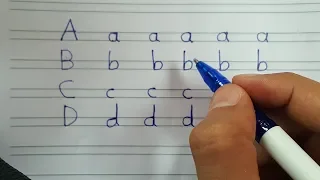 A a a a a a
B b b b b b
C c c c
D d d d